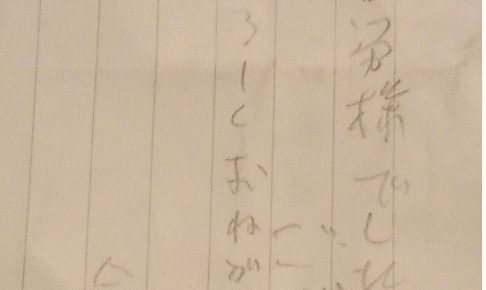 労様でした
ろしくおねが
に